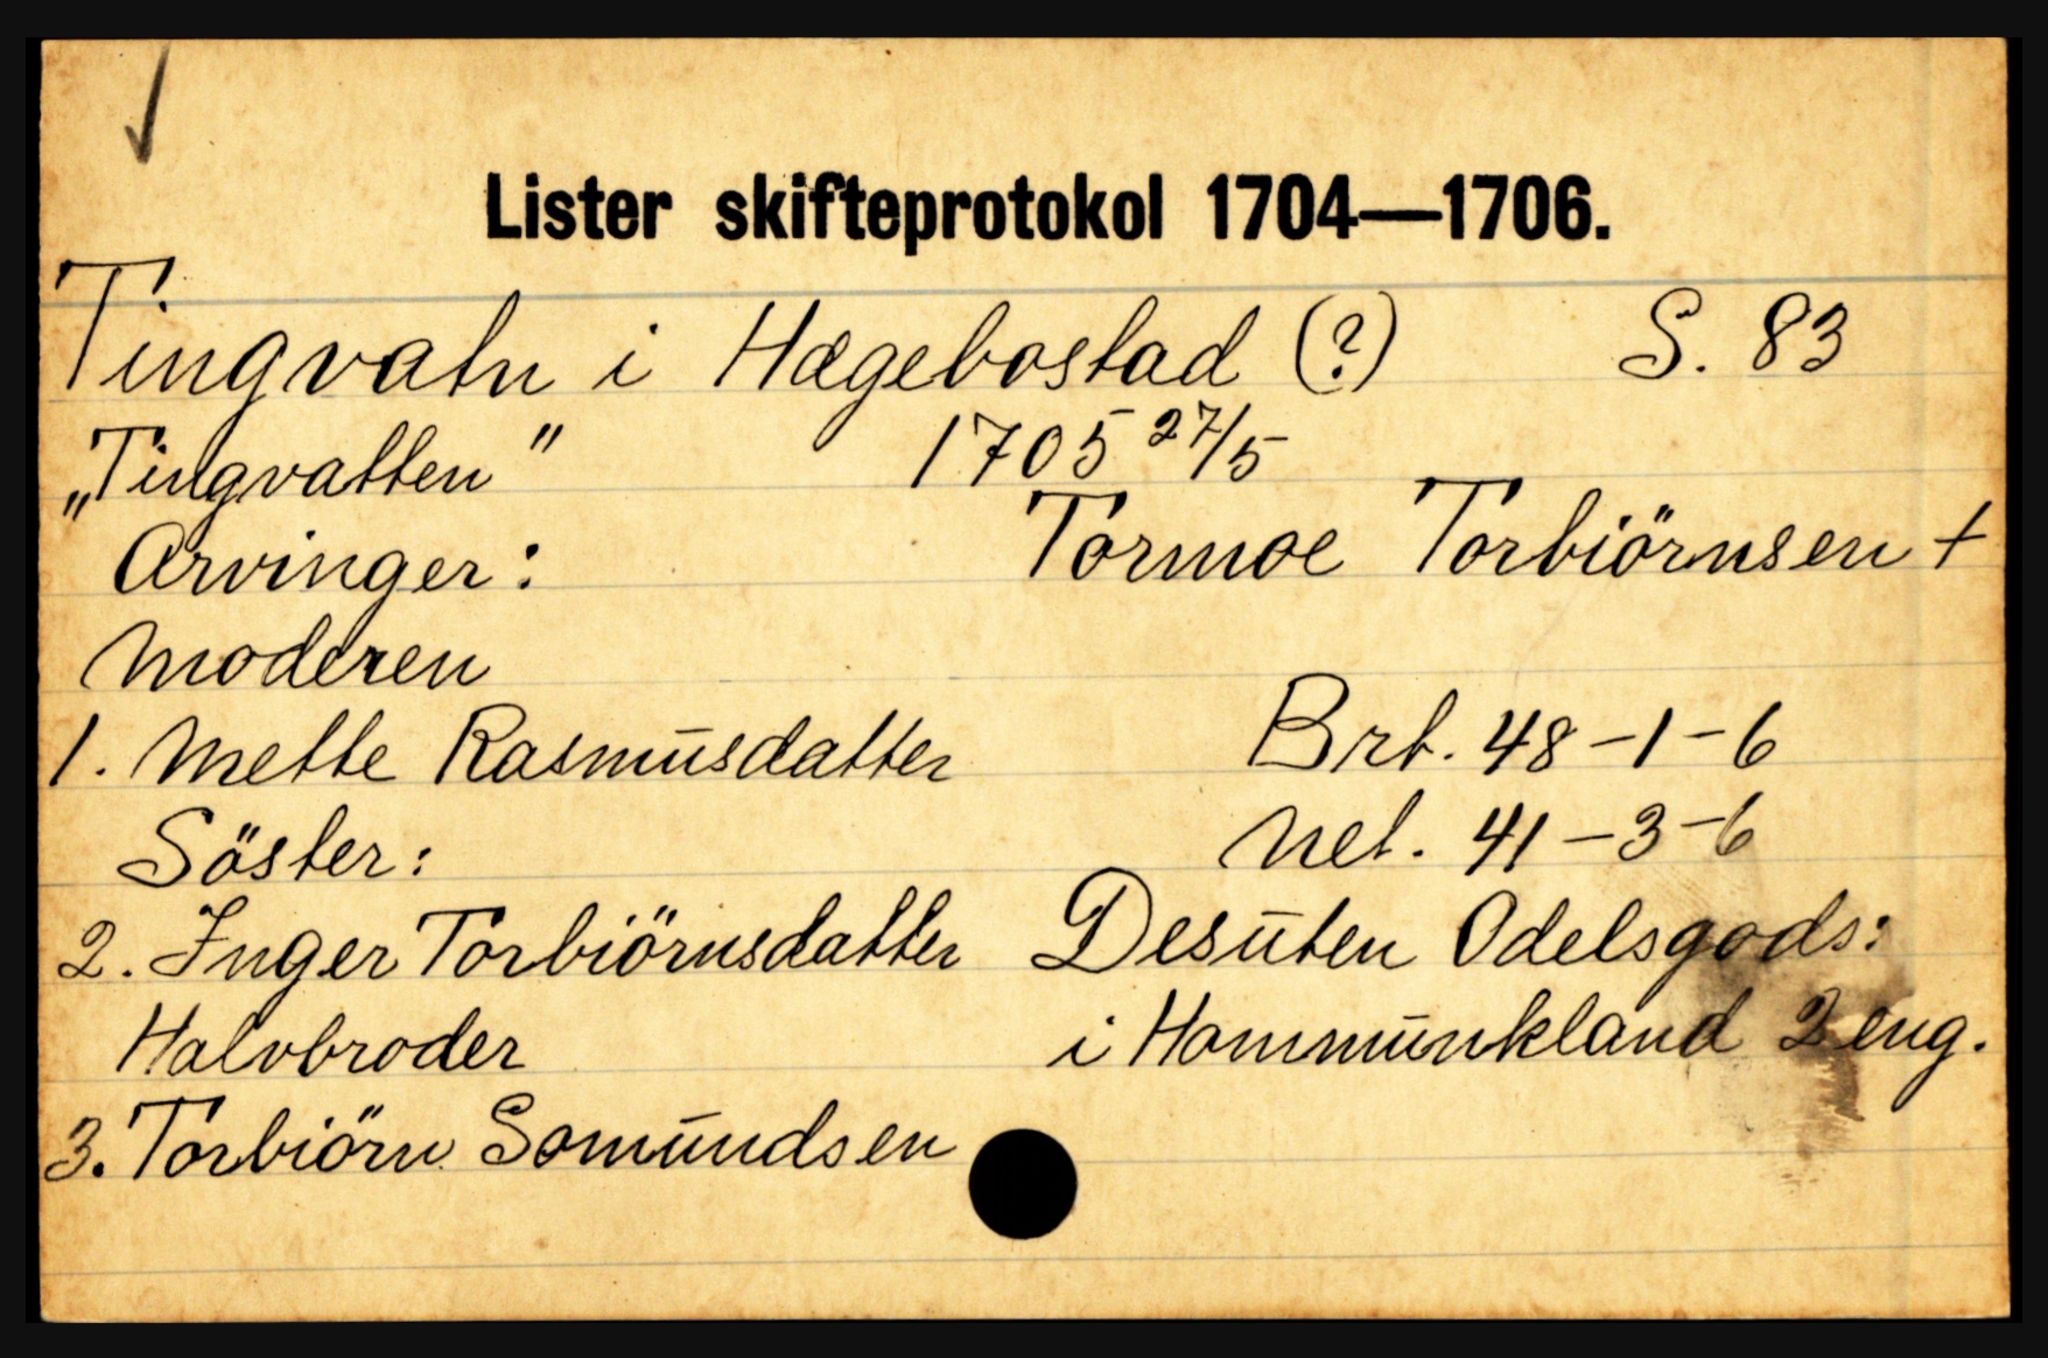 Lister skifteprotokol 1704—1706.
Tingvatn i Hægebostad (?) S. 83
„Tingvatten" 1705 27/5
Arvinger: Tormoe Torbiörnsen +
Moderen
1. Mette Rasmusdatter Brt. 48-1-6
Söster: Net. 41-3-6
2. Inger Torbiörnsdatter Desuten Odelsgods:
Halvbroder i Hommunkland 2 eng.
3. Torbiörn Somundsen